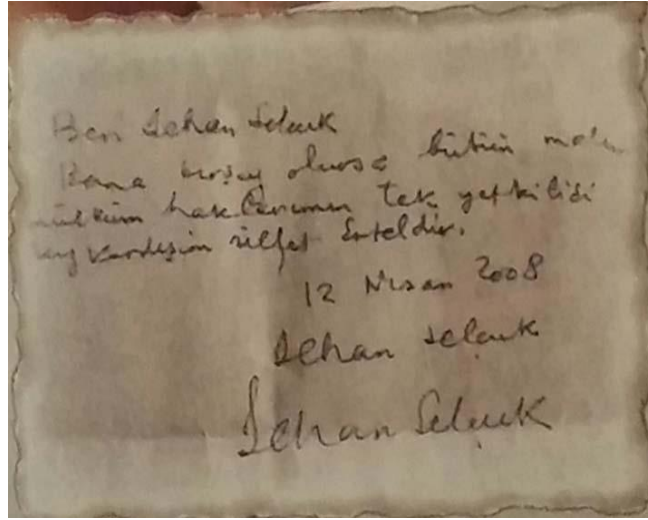 Ben İlhan Selçuk
Bana birşey olursa bütün malım
mülküm haklarımın tek yetkilisi
kız kardeşim Ülfet Erteldir.
12 Nisan 2008
İlhan Selçuk
İlhan Selçuk